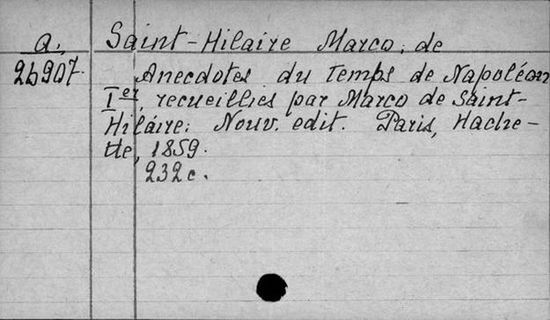 a. Saint-Hilaire Marco, de
26907. Anecdotes du temps de Napoléon
Ier, recueillies par Marco de Saint-
Hilaire. Nouv. edit. Paris, Hache-
tte, 1859.
232 c.